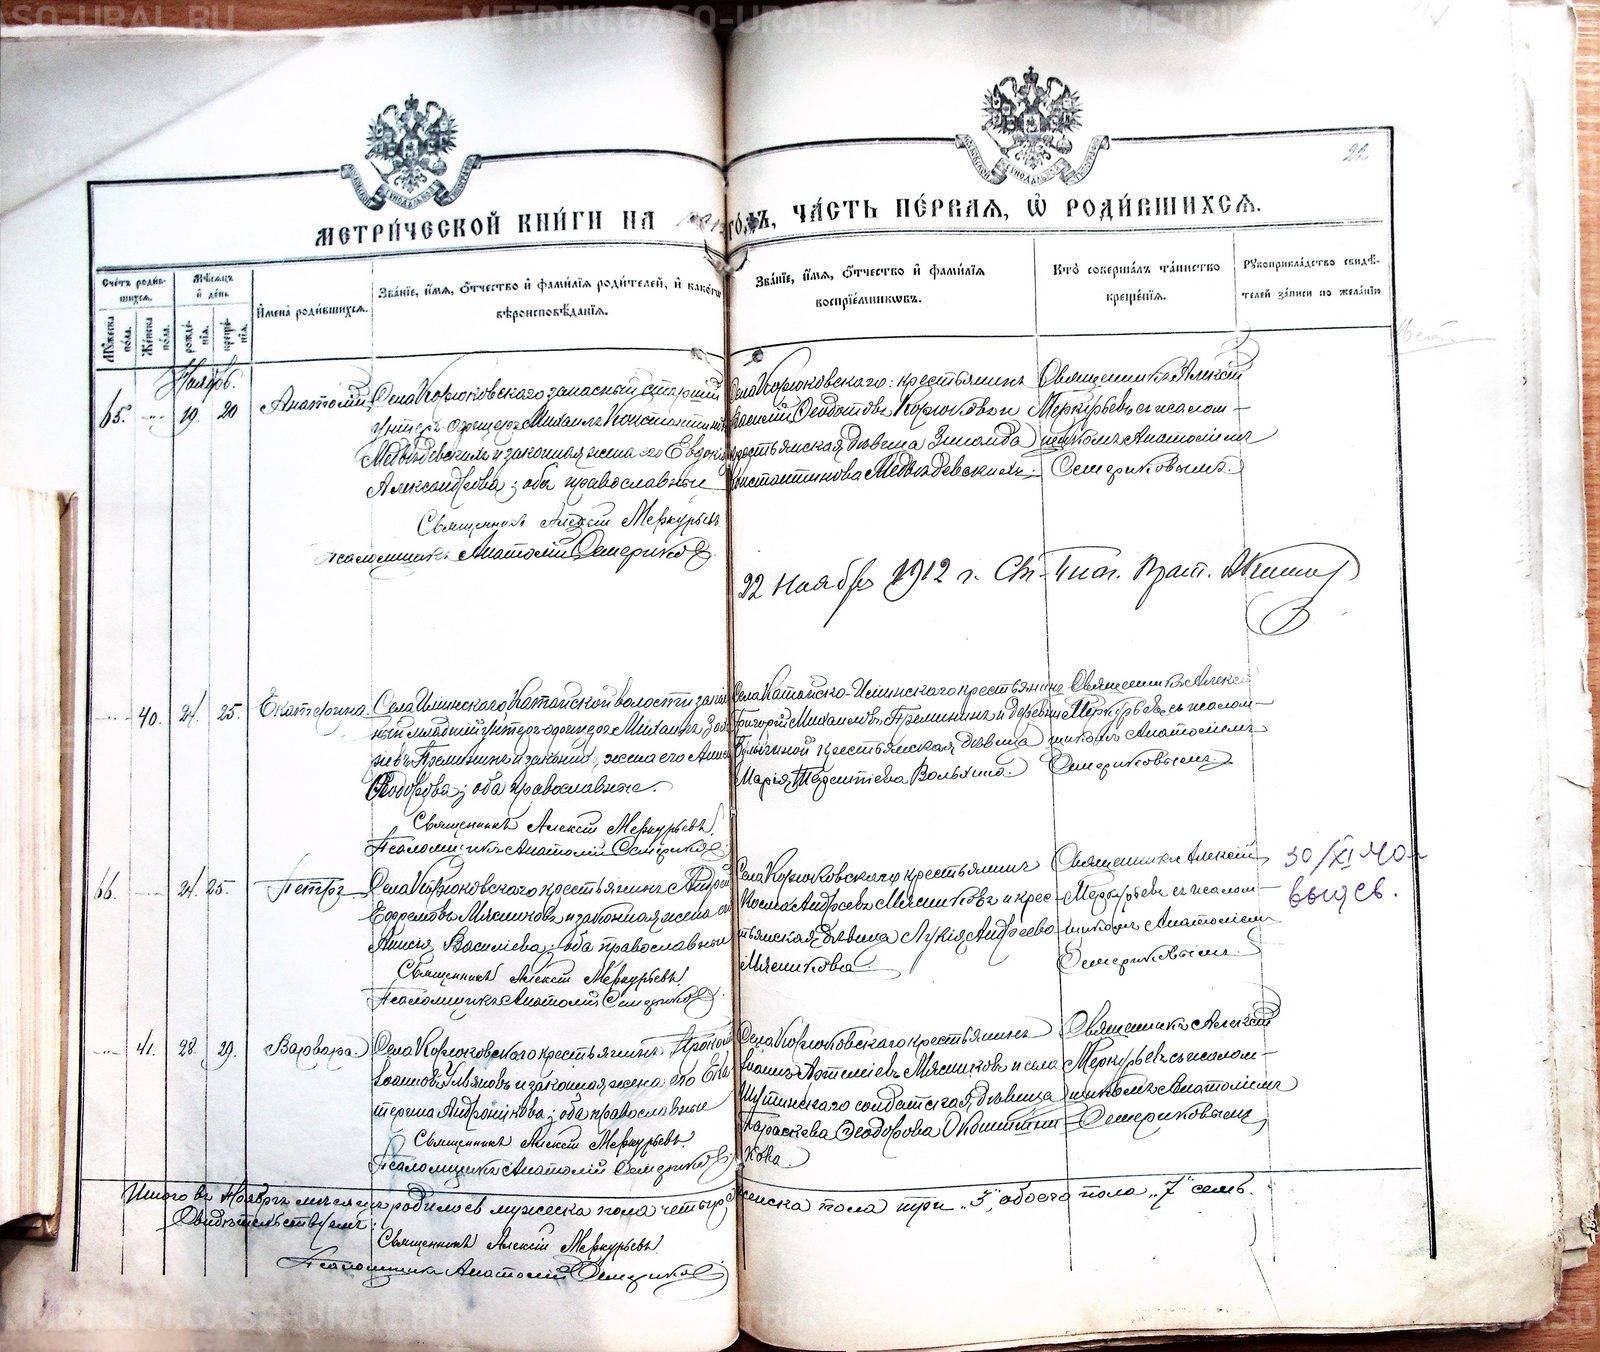 МЕТРИ́ЧЕСКОЙ КНИ́ГИ НА ГО́ДЪ, ЧА́СТЬ ПЕ́РВАЯ, Ѡ РОДИ́ВШИХСЯ.
22.
Сче́тъ роди́вшихся.
Му́жеска по́ла.
Же́нска по́ла.
Мѣ́сяцъ и де́нь
рожде́нія.
креще́нія.
И́мена роди́вшихся.
Зва́ніе, и́мя, о́тчество и фами́лія роди́телей, и како́го вѣроисповѣ́данія.
Зва́ніе, и́мя, о́тчество и фами́лія воспріе́мниковъ.
Кто́ соверша́лъ та́инство креще́нія.
Рукоприкла́дство свидѣ́телей за́писи по жела́нію
Ноябрь.
65. 19. 20
Анатолій
Села Корюковскаго запасный старшій
унтеръ-офицеръ Михаилъ Константиновъ
Медвѣдевскихъ и законная жена его Евдокія
Александрова; оба православные
Священникъ Алексій Меркурьевъ
Псаломщикъ Анатолій Семериковъ
Села Корюковскаго: крестьянинъ
Василій Ѳеодотовъ Корюковъ и
крестьянская дѣвица Зинаида
Константинова Медвѣдевскихъ.
Священникъ Алексій
Меркурьевъ съ псалом-
щикомъ Анатоліемъ
Семериковымъ.
22 Ноября 1912 г.
40. 24. 25.
Екатерина
Села Ильинскаго Катайской волости запас
ный младшій унтеръ-офицеръ Михаилъ
и законная жена его
Ѳеодорова; оба православные.
Священникъ Алексій Меркурьевъ
Псаломщикъ Анатолій Семериковъ
Села Катайско-Ильинскаго крестьянинъ
Григорій Михаиловъ и деревни
крестьянская дѣвица
Марія Терентіева Вольхина.
Священникъ Алексій
Меркурьевъ съ псалом-
щикомъ Анатоліемъ
Семериковымъ.
66. 24. 25.
Петръ
Села Корюковскаго крестьянинъ Андрей
Ефремовъ Мясниковъ и законная жена его
Анисія Василіева; оба православные
Священникъ Алексій Меркурьевъ
Псаломщикъ Анатолій Семериковъ
Села Корюковскаго крестьянинъ
Косма Андреевъ Мясниковъ и крес-
тьянская дѣвица Лукія Андреева
Мясникова.
Священникъ Алексій
Меркурьевъ съ псалом-
щикомъ Анатоліемъ
Семериковымъ.
30/XI 40 г
выд св.
41. 28. 29.
Варвара
Села Корюковскаго крестьянинъ Прокопій
Іоанновъ Ульяновъ и законная жена его Ека
терина Андроникова; оба православные
Священникъ Алексій Меркурьевъ
Псаломщикъ Анатолій Семериковъ
Села Корюковскаго крестьянинъ
Іоаннъ Артеміевъ Мясниковъ и села
Шутинскаго солдатская дѣвица
Параскева Ѳеодорова
кова.
Священникъ Алексій
Меркурьевъ съ псалом-
щикомъ Анатоліемъ
Семериковымъ
Итого въ Ноябрѣ мѣсяцѣ родилось мужеска пола четыре, женска пола три „3“, обоего пола „7“ семь.
Свидѣтельствуемъ:
Священникъ Алексій Меркурьевъ
Псаломщикъ Анатолій Семериковъ
METRIKI.GASO-URAL.RU